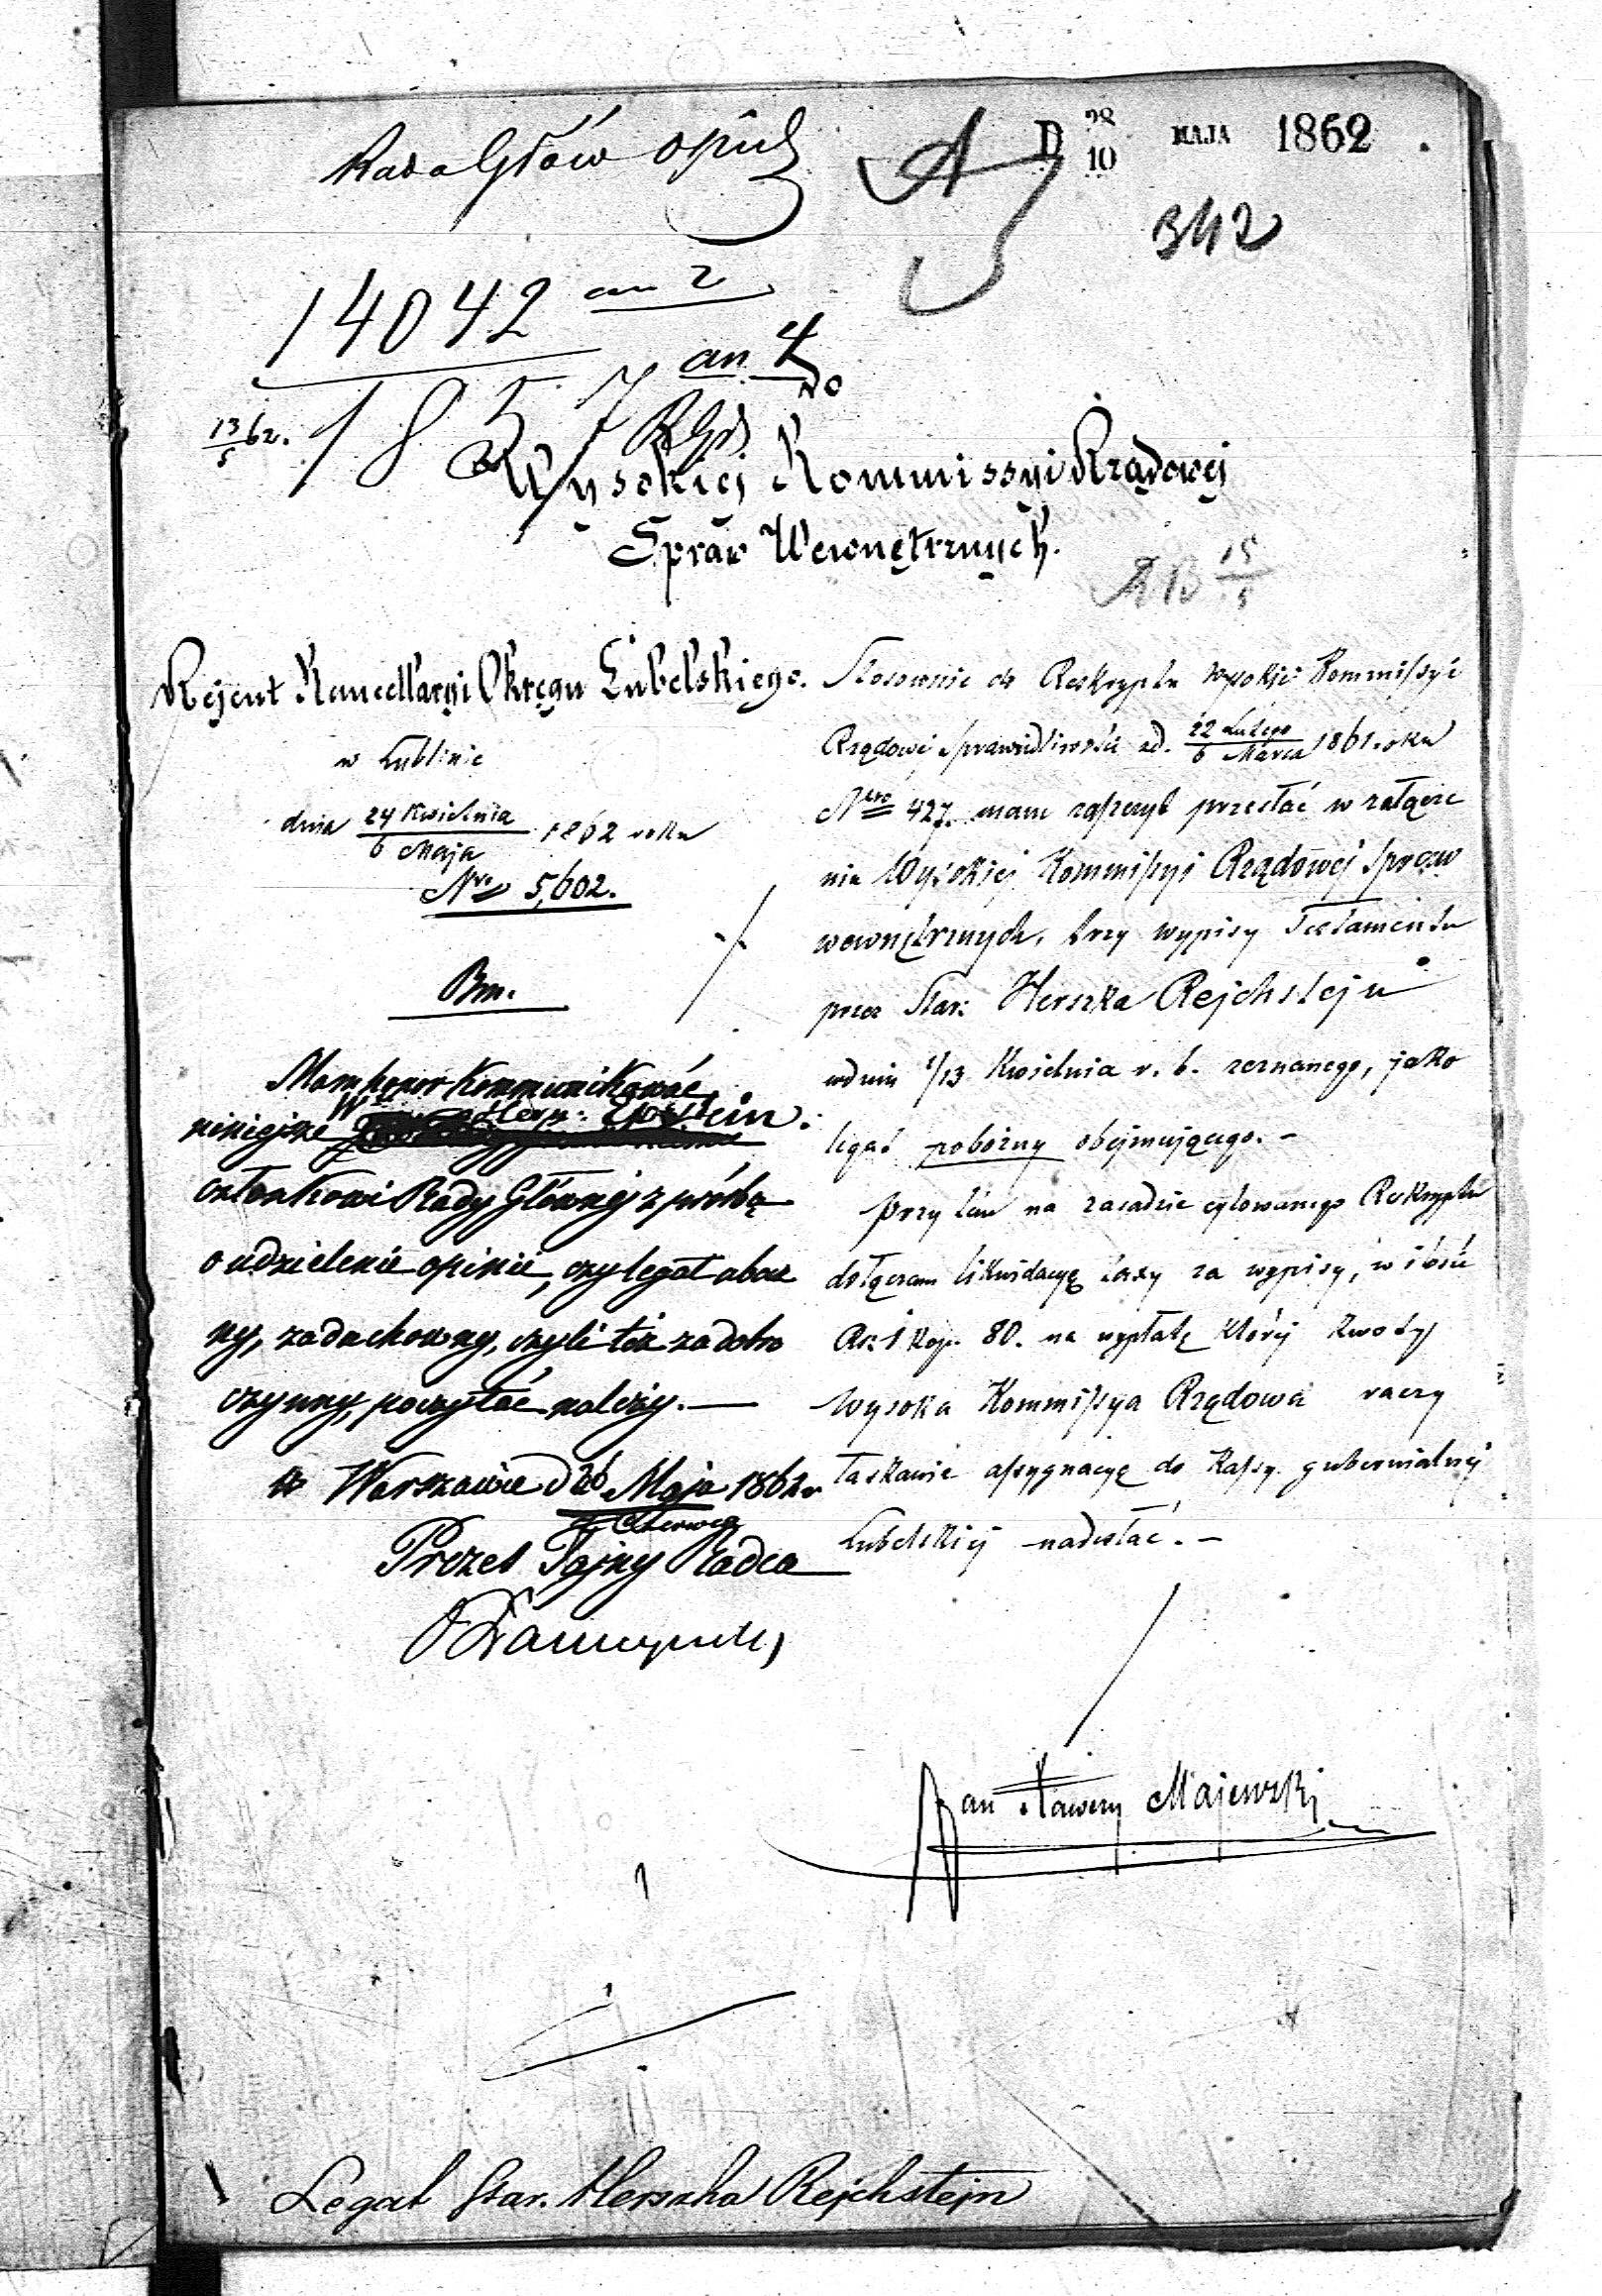 Rada Głów opiek
D 28/10 MAJA 1862
342
14042 an 2
1857 an 4
13/5 62.
do
Wysokiej Kommissyi Rządowej
Spraw Wewnętrznych.
15/5
Rejent Kancellaryi Okręgu Lubelskiego.
w Lublinie
dnia 24 Kwietnia/6 Maja 1862 roku
Nro 5,602.
Bm.
Stosownie do Reskryptu Wysokiej Kommissyi
Rządowej Sprawiedliwości z d. 22 Lutego/6 Marca 1861. roku
Nro 427. mam zaszczyt przesłać w załącze
niu Wysokiej Kommissyi Rządowej Spraw
wewnętrznych, trzy wypisy Testamentu
przez Star: Herszka Rejchstejn
w dniu 1/13 Kwietnia r. b. zeznanego, jako
legat pobożny obejmującego. -
Przy tém na zasadzie cytowanego Reskryptu
dołączam likwidacyę taxy za wypisy, w ilości
Rs: 1 kop. 80. na wypłatę której kwoty
Wysoka Kommissya Rządowa raczy
łaskawie assygnacyę do Kassy gubernialnej
Lubelskiej nadesłać. -
Jan Xawery Majewski
Mam honor kommunikować
niniejsze W Herm: Epstein.
członkowi Rady Głównej z prośbą
o udzielenie opinii, czy legat obec
ny, za duchowny, czyli też za dobro
czynny, poczytać należy. —
w Warszawie d 26 Maja/Czerwca 1862 r
Prezes Tajny Radca
Legat Star. Herszka Rejchstejn